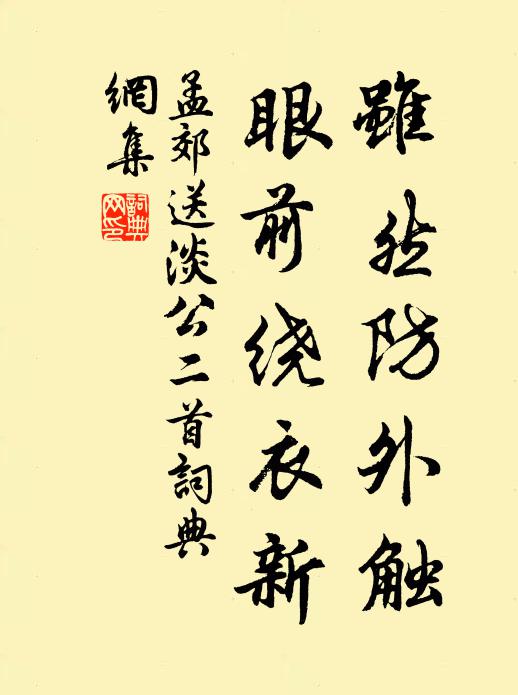 雖然防外触
眼前绕衣新
孟郊送淡公二首詞典
網集
詞典網印